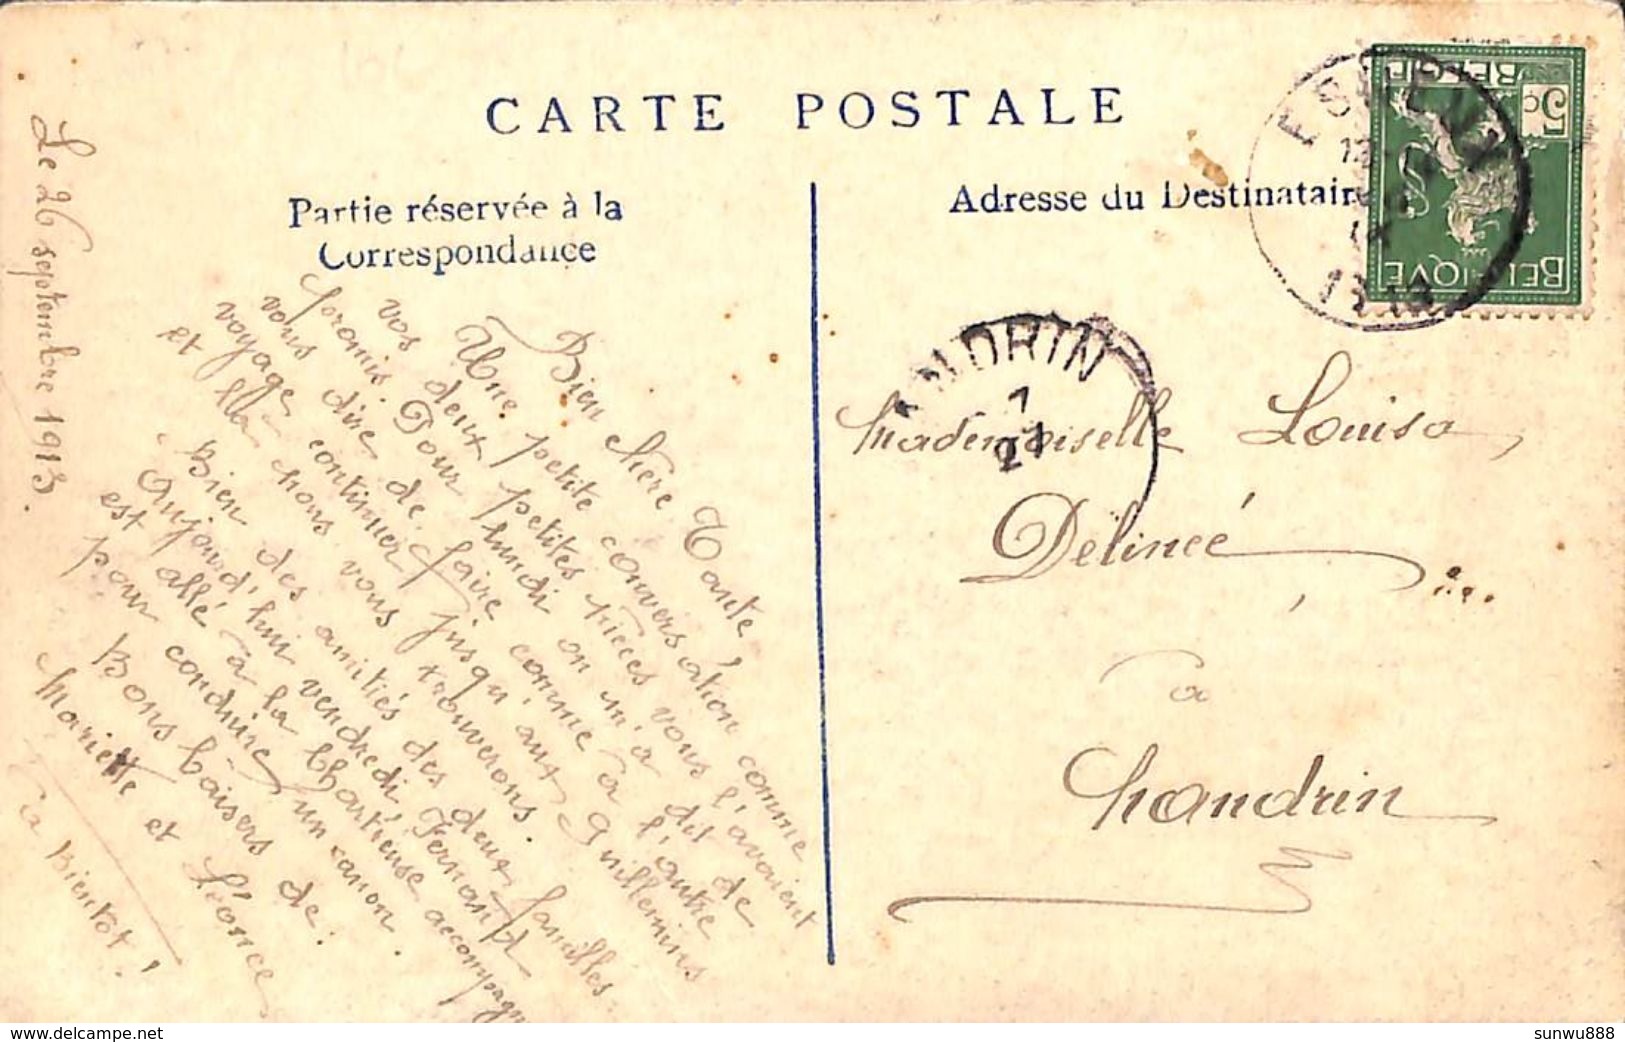 CARTE POSTALE
Partie réservée à la
Correspondance
Adresse du Destinatair
Le 26 septembre 1913.
Bien chère Tante,
Une petite conversation comme
vos deux petites nièces vous l'avaient
promis. Pour lundi on m'a dit de
vous dire de faire comme à l'autre
voyage continuer jusqu'aux Guillemins
et là nous vous trouverons.
Bien des amitiés des deux familles.
Aujourd'hui vendredi, Fernand
est allé à la Chartreuse accompagn
pour conduire un canon.
Bons baisers de:
Mariette et Léonce
à Bientôt!
Mademoiselle Louisa
Delincé
à
Chandrin
ANDRIN
7
21
ESNEUX
1913
5 c
BELGIË
BELGIQUE
www.delcampe.net
sunwu888